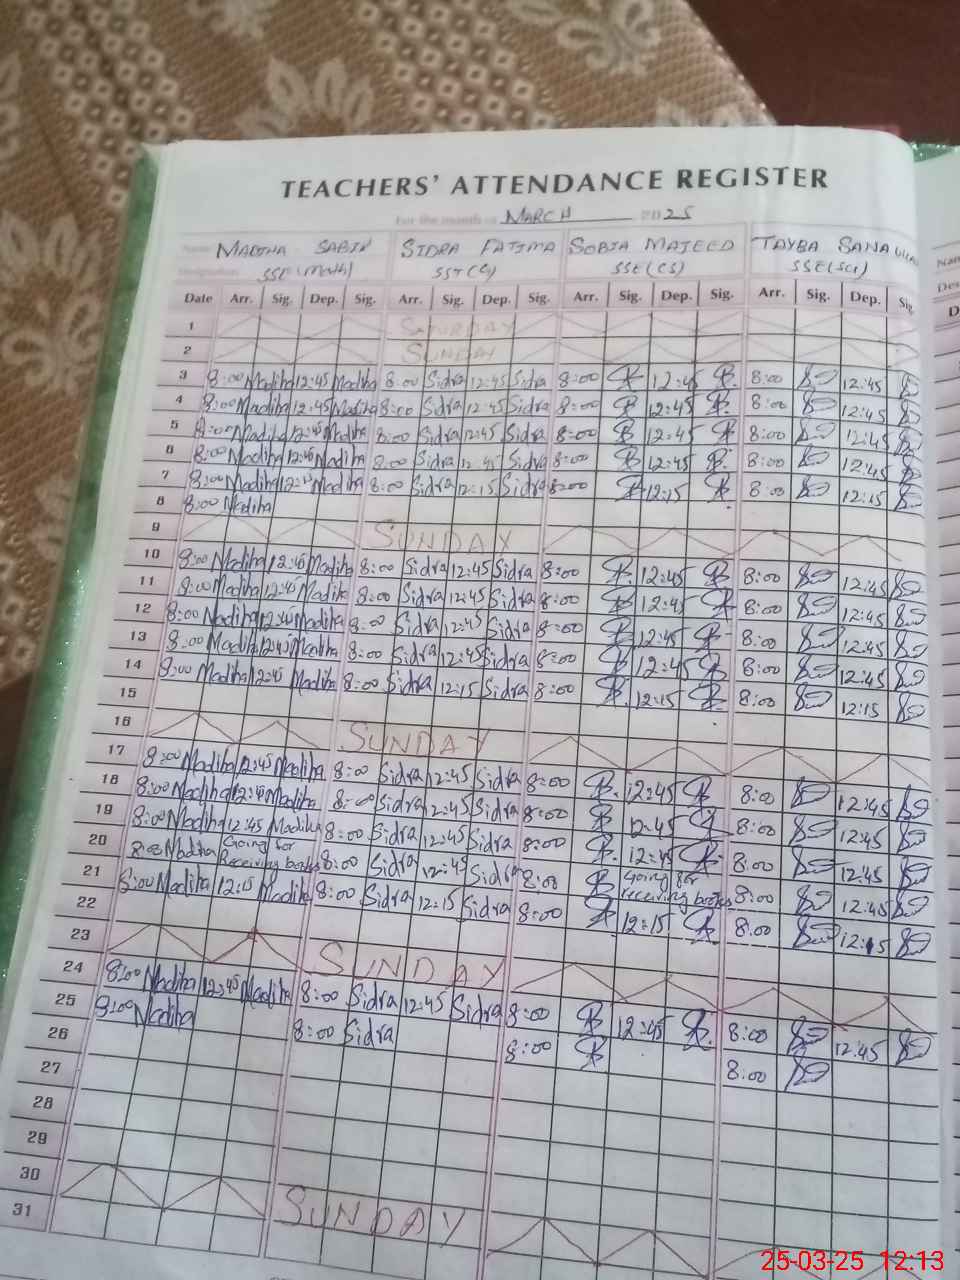 TEACHERS' ATTENDANCE REGISTER
For the month of MARCH 2025
Name MADIHA SABIR SIDRA FATIMA SOBIA MAJEED TAYBA SANA Nam
Designation SSE (Math) SST (CS) SSE (CS) SSE (SCI) Des
Date Arr. Sig. Dep. Sig. Arr. Sig. Dep. Sig. Arr. Sig. Dep. Sig. Arr. Sig. Dep. Sig. D
1 SATURDAY
2 SUNDAY
3 8:00 Madiha 12:45 Madiha 8:00 Sidra 12:45 Sidra 8:00 12:45 8:00 12:45
4 8:00 Madiha 12:45 Madiha 8:00 Sidra 12:45 Sidra 8:00 12:45 8:00 12:45
5 8:00 Madiha 12:45 Madiha 8:00 Sidra 12:45 Sidra 8:00 12:45 8:00 12:45
6 8:00 Madiha 12:45 Madiha 8:00 Sidra 12:45 Sidra 8:00 12:45 8:00 12:45
7 8:00 Madiha 12:15 Madiha 8:00 Sidra 12:15 Sidra 8:00 12:15 8:00 12:15
8 8:00 Madiha
9 SUNDAY
10 8:00 Madiha 12:45 Madiha 8:00 Sidra 12:45 Sidra 8:00 12:45 8:00 12:45
11 8:00 Madiha 12:45 Madiha 8:00 Sidra 12:45 Sidra 8:00 12:45 8:00 12:45
12 8:00 Madiha 12:45 Madiha 8:00 Sidra 12:45 Sidra 8:00 12:45 8:00 12:45
13 8:00 Madiha 12:45 Madiha 8:00 Sidra 12:45 Sidra 8:00 12:45 8:00 12:45
14 8:00 Madiha 12:45 Madiha 8:00 Sidra 12:15 Sidra 8:00 12:15 8:00 12:15
15
16 SUNDAY
17 8:00 Madiha 12:45 Madiha 8:00 Sidra 12:45 Sidra 8:00 12:45 8:00 12:45
18 8:00 Madiha 12:45 Madiha 8:00 Sidra 12:45 Sidra 8:00 12:45 8:00 12:45
19 8:00 Madiha 12:45 Madiha 8:00 Sidra 12:45 Sidra 8:00 12:45 8:00 12:45
20 8:00 Madiha Going for Receiving books 8:00 Sidra 12:45 Sidra 8:00 Going for receiving books 8:00 12:45
21 8:00 Madiha 12:15 Madiha 8:00 Sidra 12:15 Sidra 8:00 12:15 8:00 12:15
22
23 SUNDAY
24 8:00 Madiha 12:45 Madiha 8:00 Sidra 12:45 Sidra 8:00 12:45 8:00 12:45
25 8:00 Madiha 8:00 Sidra 8:00 8:00
26
27
28
29
30 SUNDAY
31
25-03-25 12:13